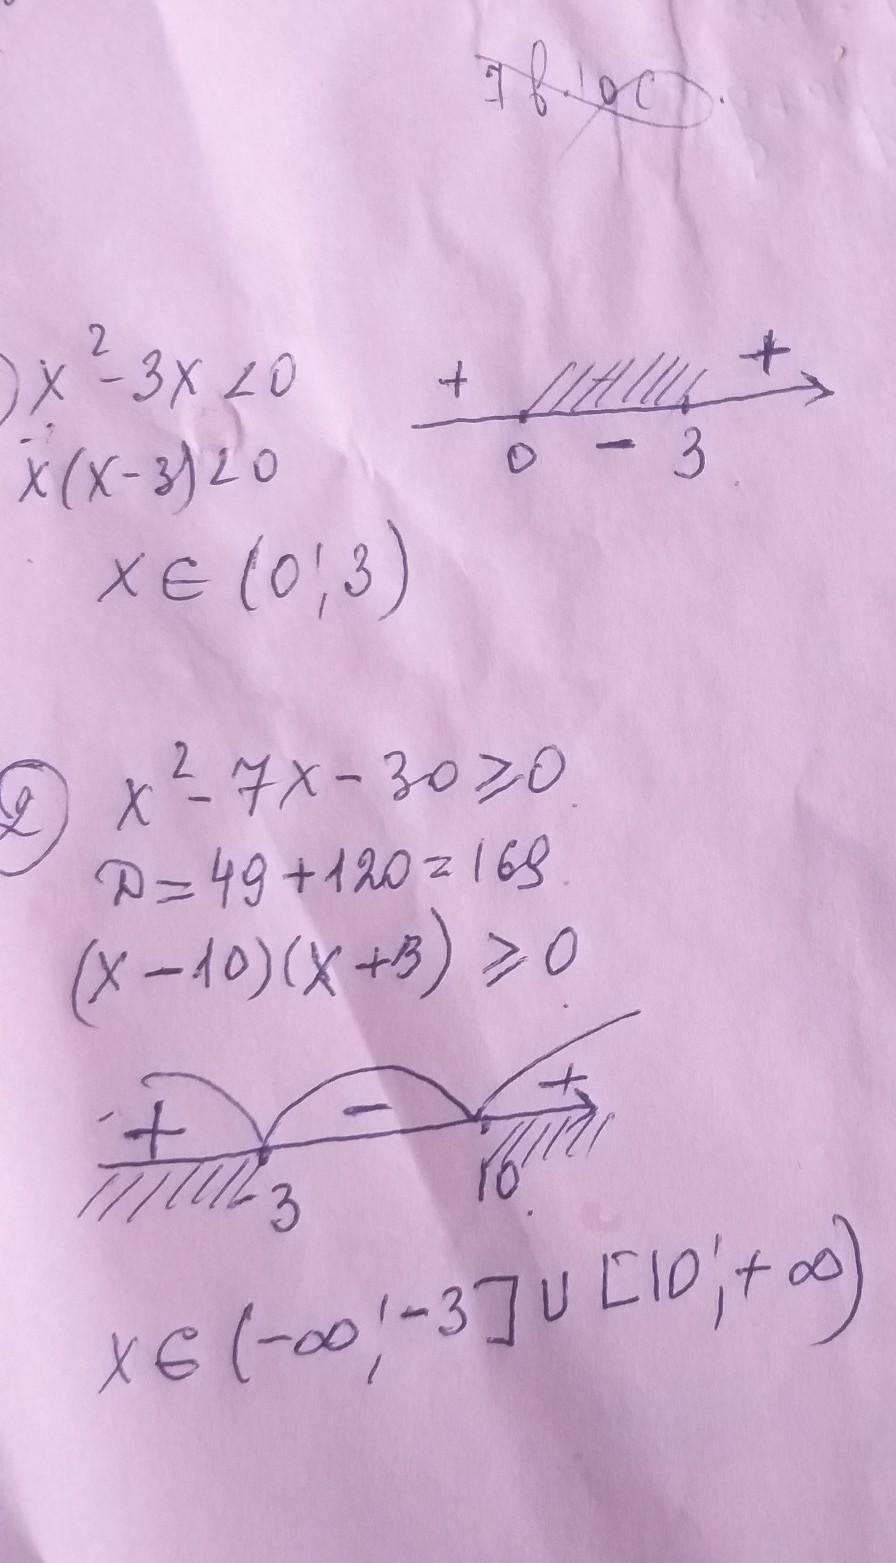 x² - 3x < 0
+ +
0 - 3
x(x-3) < 0
x ∈ (0; 3)
2 x² - 7x - 30 ≥ 0
D = 49 + 120 = 169
(x - 10)(x + 3) ≥ 0
+ - +
-3 10
x ∈ (-∞; -3] ∪ [10; +∞)